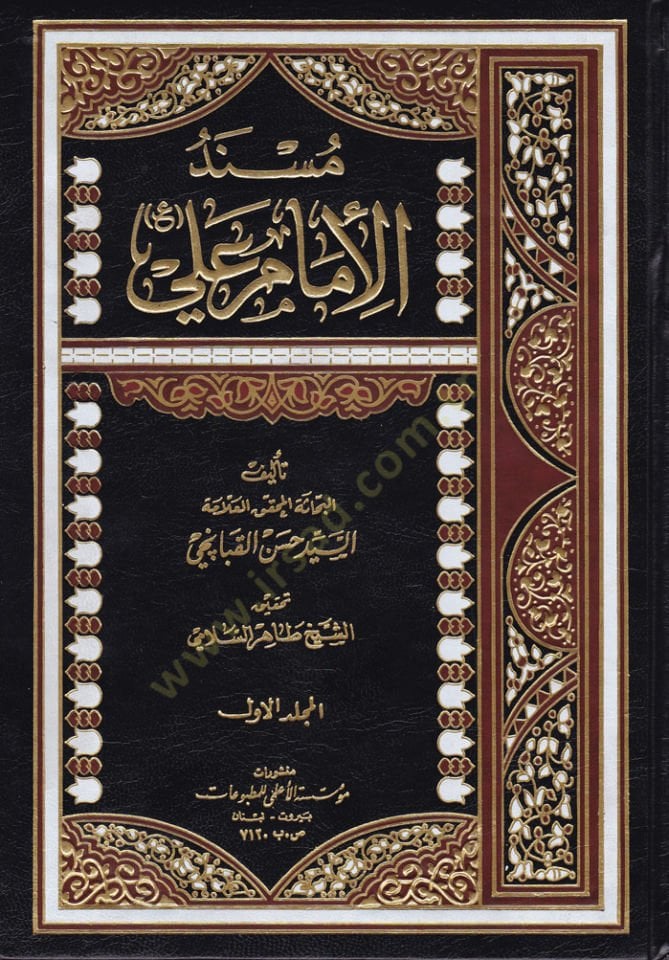 مُسْنَدُ
الإِمَامِ عَلي (ع)
تأليف
البحاثة المحقق العلامة
السَّيِّد حسَن القبَانجي
تحقيق
الشيخ طاهر السلامي
المجلد الاول
منشورات
مؤسسة الأعلمي للمطبوعات
بيروت - لبنان
ص.ب ٧١٢٠
www.irsad.com.tr